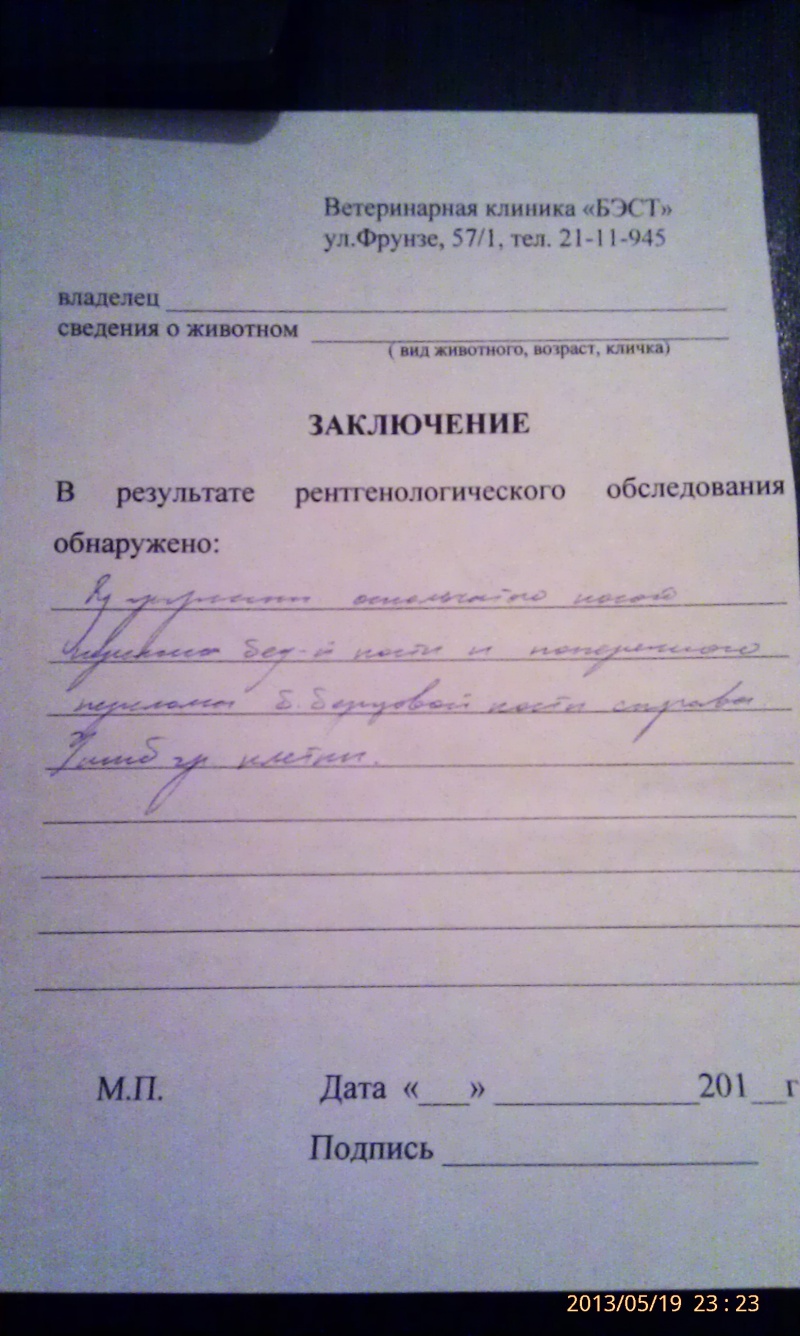 Ветеринарная клиника «БЭСТ»
ул.Фрунзе, 57/1, тел. 21-11-945
владелец
сведения о животном
( вид животного, возраст, кличка)
ЗАКЛЮЧЕНИЕ
В результате рентгенологического обследования
обнаружено:
оскольчато косой
бед-й кости и поперечного
перелома б. берцовой кости справа.
Ушиб гр клетки.
М.П. Дата «___» ____________201__г
Подпись
2013/05/19 23:23